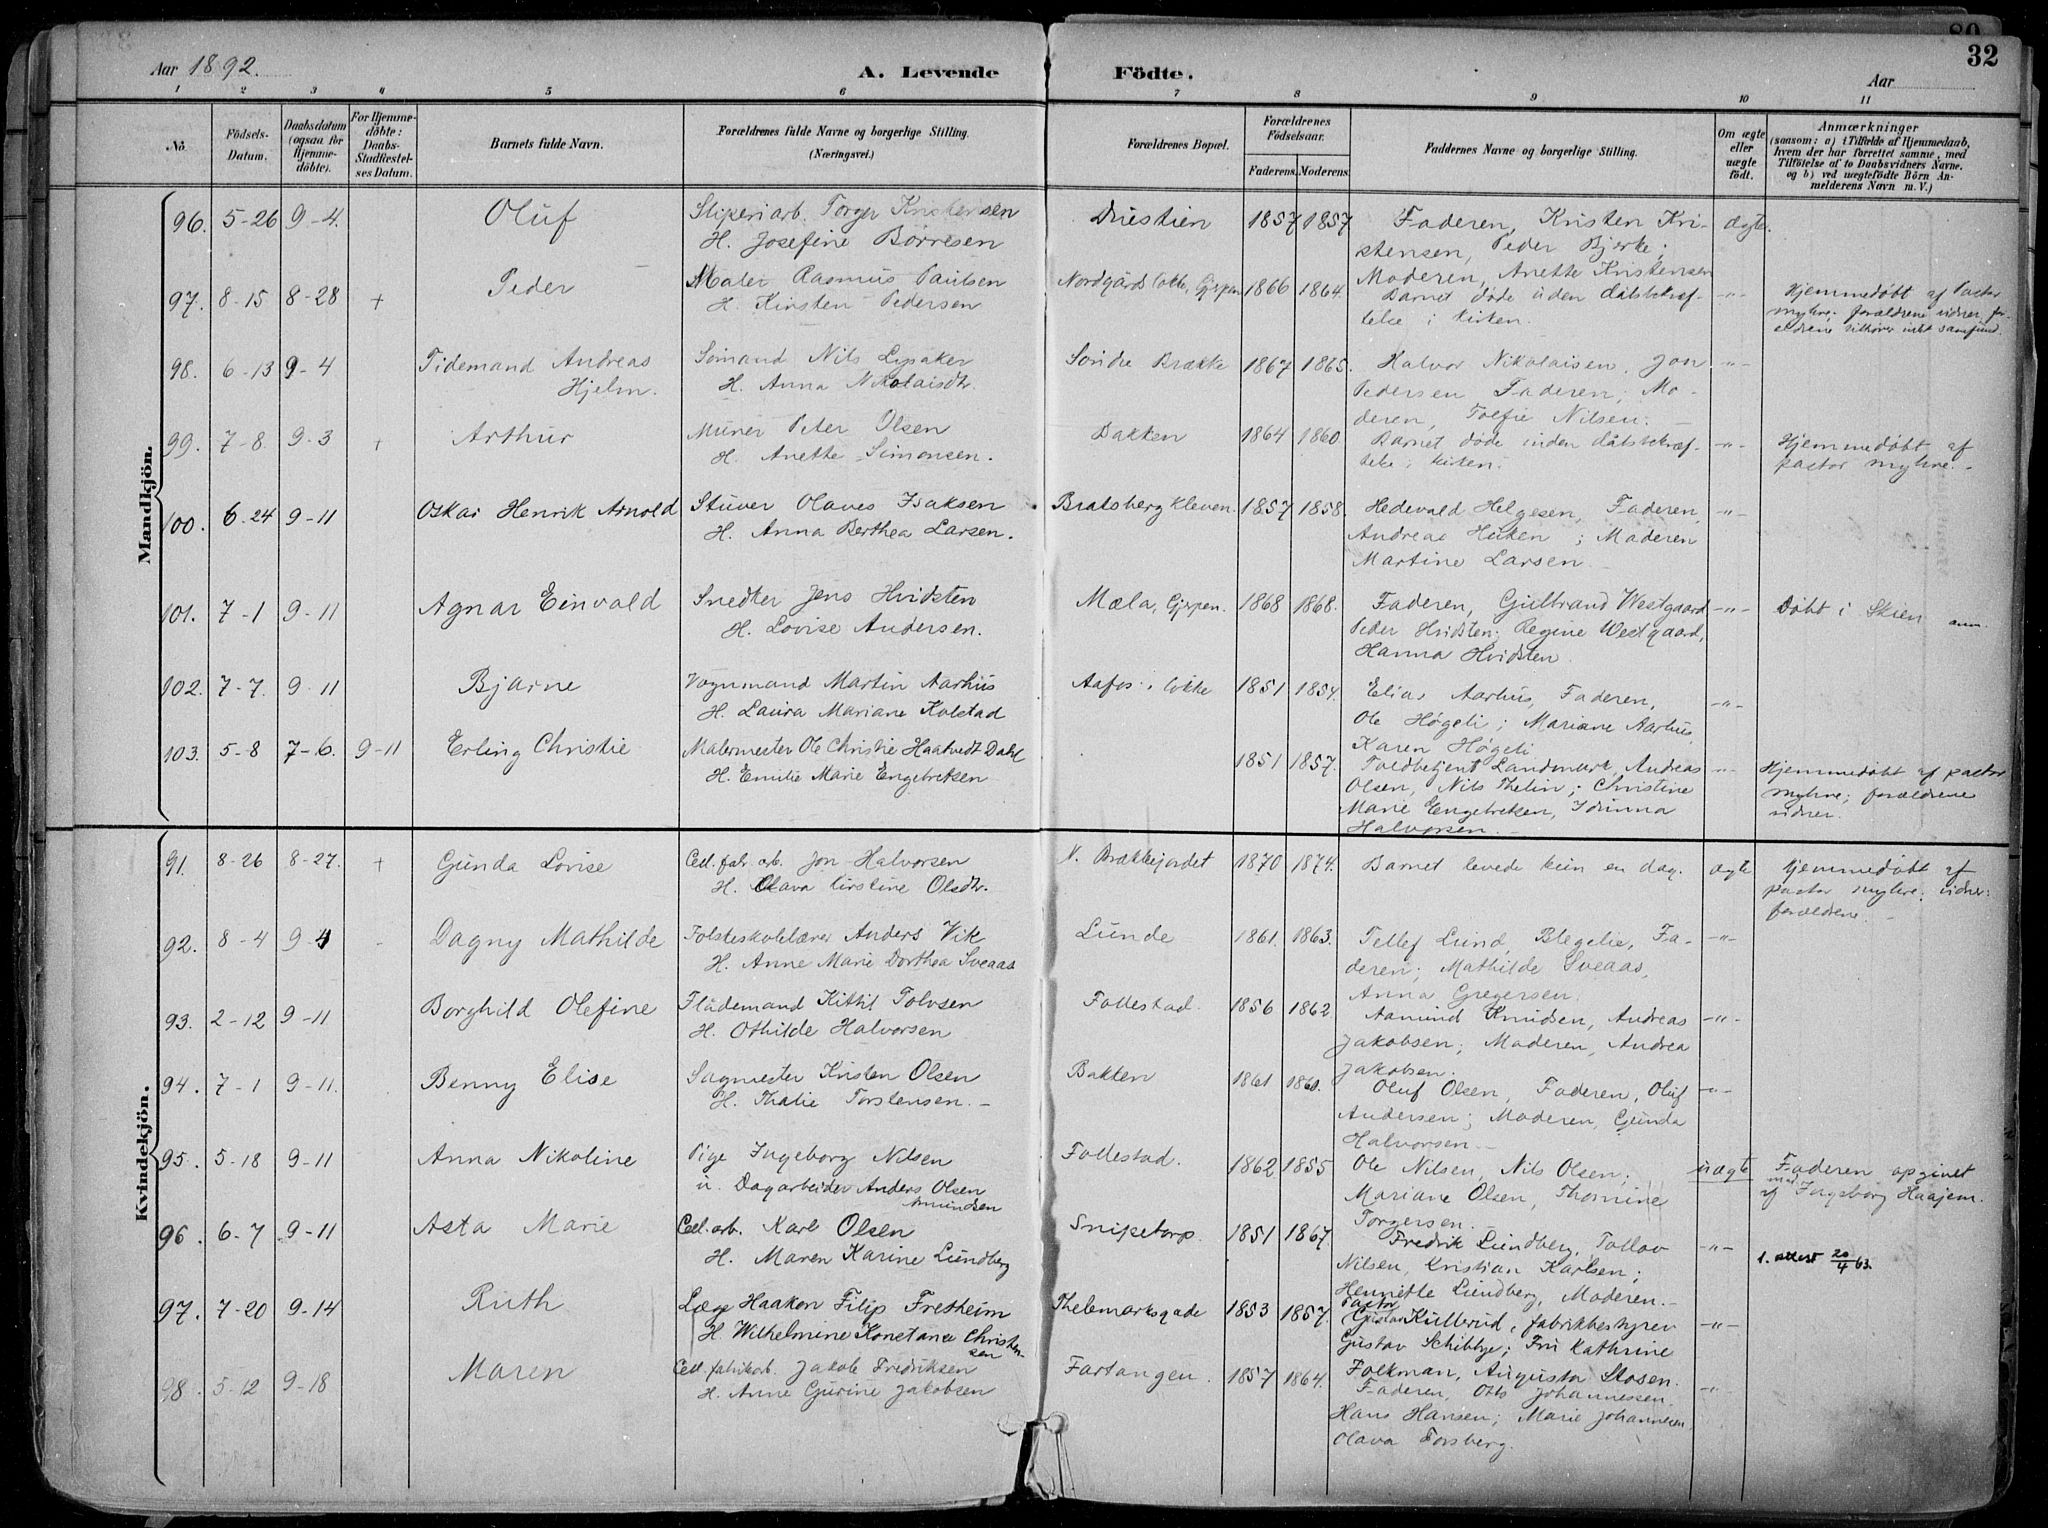 32
Aar 1892.
A. Levende Födte.
Aar
1 2 3 4 5 6 7 8 9 10 11
No. Födsels-Datum. Daabsdatum (ogsaa for Hjemmedöbte). For Hjemmedöbte: Daabs-Stadfæstelses Datum. Barnets fulde Navn. Forældrenes fulde Navne og borgerlige Stilling. (Næringsvei.) Forældrenes Bopæl. Forældrenes Födselsaar. Faderens. Moderens. Faddernes Navne og borgerlige Stilling. Om ægte eller uægte födt. Anmærkninger (saasom: a) i Tilfælde af Hjemmedaab, hvem der har forrettet samme, med Tilföielse af to Daabsvidners Navne. og b) ved uægtefödte Börn Anmelderens Navn m. V.)
Mandkjön.
96. 5-26 9-4. Oluf Sliperiarb. Torger Kristensen 1857 1857 Faderen, Kristen Kri- ægte.
H. Josefine Börresen stensen, Peder Bjerke;
Moderen, Anette Kristensen
97. 8-15 8-28 + Peder Maler Rasmus Paulsen Nordgårds løkke, Gjerpen 1866 1864. Barnet døde uden dåbsbekræf- -"- Hjemmedøbt af Pastor
H. Kirsten Pedersen telse i kirken. Myhre. forældrene vidner, for-
ældrene tilhører intet samfund.
98. 6-13 9-4 Tidemand Andreas Sömand Nils Lysaker Söndre Brække 1867 1865. Halvor Nikolaisen, Jon -"-
Hjelm. H. Anna Nikolaisdtr. Pedersen Faderen; Mo-
deren, Tolfie Nilsen.
99. 7-8 9-3 + Arthur Murer Peter Olsen Bakken 1864 1860. Barnet døde inden dåbsbekræf- -"- Hjemmedøbt af
H. Anette Simonsen. telse i kirken. pastor Myhre.
100. 6-24 9-11 Oskar Henrik Arnold Stuver Olaves Isaksen Bratsbergkleven. 1857 1858. Hedevald Helgesen, Faderen, -"-
H. Anna Berthea Larsen. Andreas ; Moderen
Martine Larsen
101. 7-1 9-11 Agnar Einvald Snedker Jens Hvidsten Mæla, Gjerpen. 1868 1868. Faderen, Gulbrand Westgaard -"- Döbt i Skien
H. Lovise Andersen. Peder Hvidsten; Regine Westgaard,
Hanna Hvidsten.
102. 7-7. 9-11 Bjarne Vognmand Martin Aarhus Aafos løkke 1851 1854. Elias Aarhus, Faderen, -"-
H. Laura Mariane Kolstad Ole Høgeli; Mariane Aarhus,
Karen Høgeli
103. 5-8 7-6. 9-11 Erling Christie Malermester Ole Christie Haatvedt Dahl 1851 1857. Toldbetjent Landmark, Andreas -"- Hjemmedøbt af pastor
H. Emilie Marie Engebretsen Olsen, Nils Thelin; Christine Myhre; forældrene
Marie Engebretsen, Idrinna vidner.
Halvorsen.
Kvindekjön.
91. 8-26 8-27. + Gunda Lovise Cell. fab. arb. Jon Halvorsen N. Brækkejordet 1870 1874. Barnet levede kun en dag. ægte Hjemmedøbt af
H. Olava Kirstine Olsdtr. pastor Myhre. vidner:
forældrene.
92. 8-4 9-4 Dagny Mathilde Folkeskolelærer Anders Vik Lunde 1861. 1863. Tellef Lund, , Fa- -"-
H. Anne Marie Dorthea Sveaas deren; Mathilde Sveaas,
Anna Gregersen.
93. 2-12 9-11 Borghild Olefine Flådemand Kittil Tolvsen Follestad. 1856 1862. Aamund Knudsen, Andreas -"-
H. Othilde Halvorsen Jakobsen; Moderen, Andrea
Jakobsen.
94. 7-1 9-11. Benny Elise Sagmester Kristen Olsen Bakken 1861 1860. Oluf Olsen, Faderen, Oluf -"-
H. Thalie Torstensen. Andersen; Moderen, Gunda
Halvorsen
95. 5-18 9-11 Anna Nikoline Pige Ingeborg Nilsen Follestad. 1862 1855 Ole Nilsen, Nils Olsen; uægte Faderen opgivet
u. Dagarbeider Anders Olsen Amundsen Mariane Olsen, Thomine af Ingeborg Haajem.
Torgersen.
96. 6-7 9-11 Asta Marie Cell. arb. Karl Olsen Snipetorp. 1851 1867. Fredrik Lundberg, Tollov -"- 1. attest 20/4 63.
H. Maren Karine Lundberg Nilsen, Kristian Karlsen;
Henriette Lundberg, Moderen.
97. 7-20 9-14 Ruth Læge Haakon Filip Fretheim Thelemarksgade 1853 1857. Pastor Gustav Kullerud, fabrikbestyrer -"-
H. Wilhelmine Konstance Christensen Gustav Schibbye; Fru Kathrine
Folkman, Augusta Stosen.
98. 5-12 9-18 Maren Cell. fabrikab. Jakob Fredriksen Fartangen. 1857 1864. Faderen, Otto Johannessen, -"-
H. Anne Gurine Jakobsen Hans Hansen; Marie Johannesen,
Olava Forsberg.